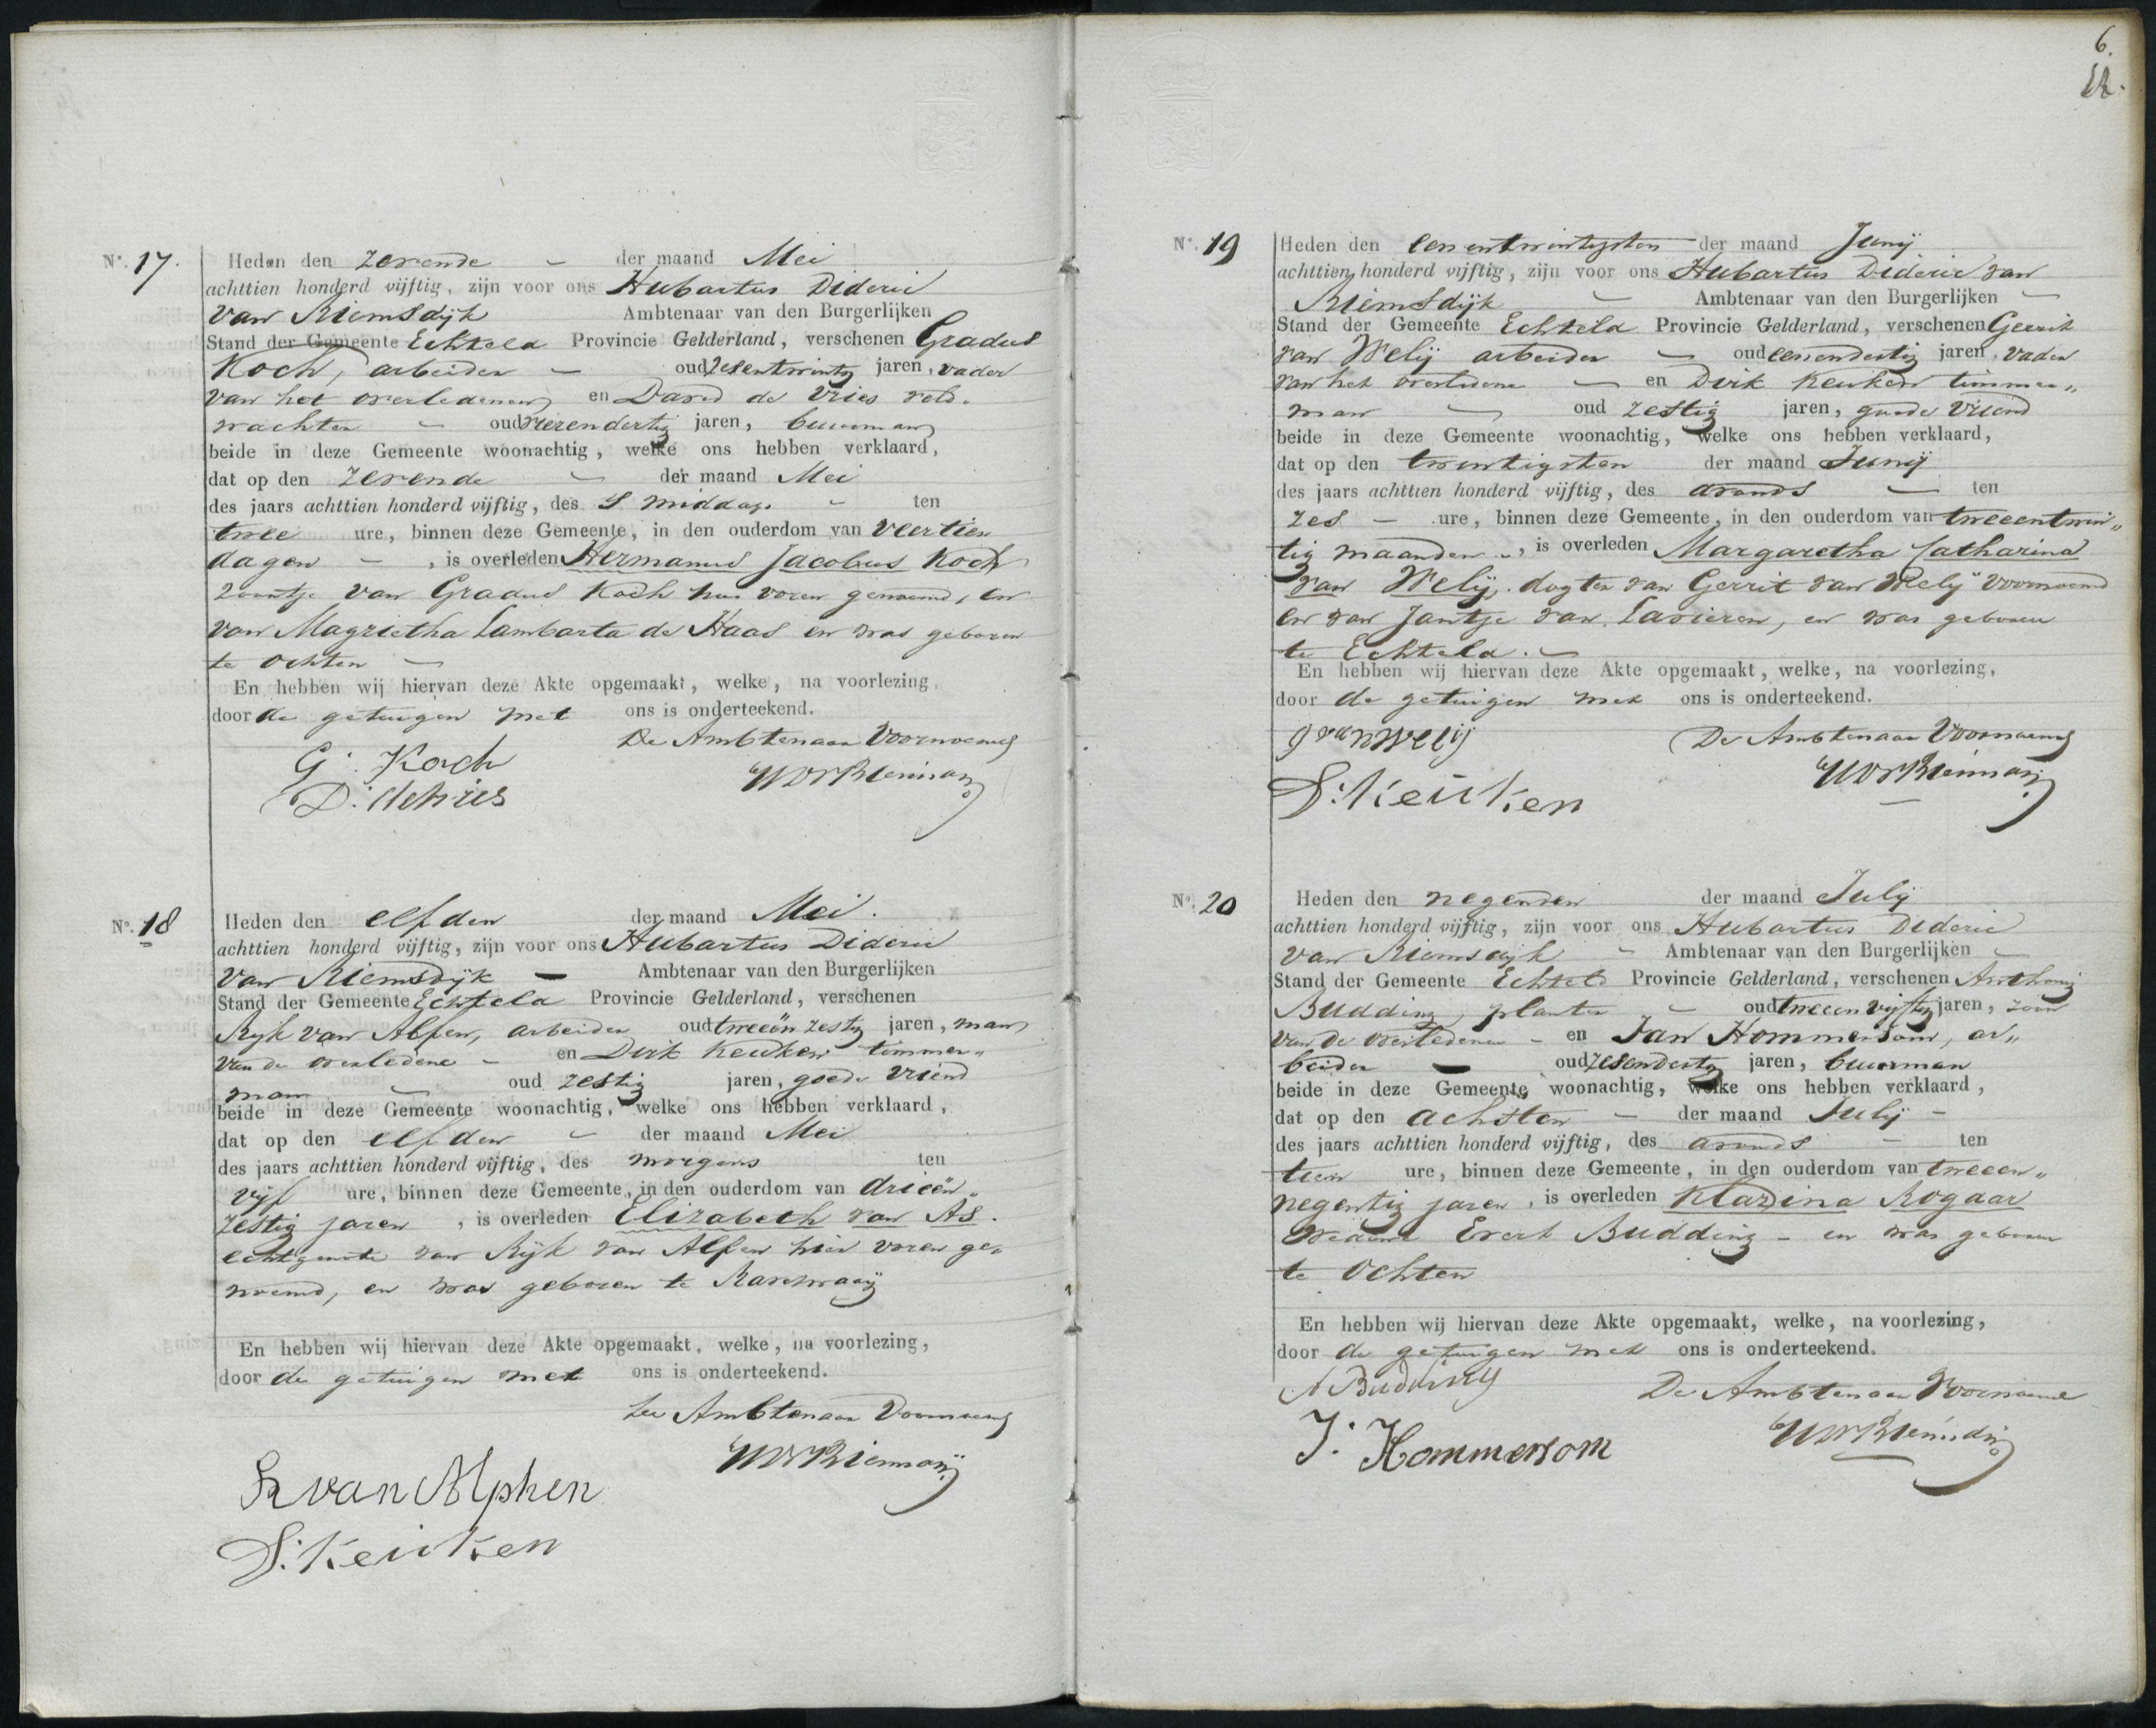 N.° 17.
Heden den zevende - der maand Mei
achttien honderd vijftig, zijn voor ons Hubartus Dideric
van Riemsdijk Ambtenaar van den Burgerlijken
Stand der Gemeente Echteld Provincie Gelderland, verschenen Gradus
Koch, arbeider - oud zesentwintig jaren, vader
van het overledenen en David de Vries veld-
wachter - oud vierendertig jaren, buurman
beide in deze Gemeente woonachtig, welke ons hebben verklaard,
dat op den zevende - der maand Mei
des jaars achttien honderd vijftig, des s middags - ten
twee ure, binnen deze Gemeente, in den ouderdom van veertien
dagen -, is overleden Hermanus Jacobus Koch
zoontje van Gradus Koch hier voren genoemd, en
van Magrietha Lambarta de Haas en was geboren
te Ochten -
En hebben wij hiervan deze Akte opgemaakt, welke, na voorlezing,
door de getuigen met ons is onderteekend.
De Ambtenaar Voornoemd
G: Koch
D: deVries
N.° 18
Heden den elfden der maand Mei.
achttien honderd vijftig, zijn voor ons Hubartus Dideric
van Riemsdijk - Ambtenaar van den Burgerlijken
Stand der Gemeente Echteld Provincie Gelderland, verschenen
Ryk van Alfen, arbeider oud tweeën zestig jaren, man
van de overledene - en Dirk Keuken timmer„
man - oud zestig jaren, goede vriend
beide in deze Gemeente woonachtig, welke ons hebben verklaard,
dat op den elfden - der maand Mei
des jaars achttien honderd vijftig, des morgens ten
vijf ure, binnen deze Gemeente, in den ouderdom van drieën„
zestig jaren, is overleden Elizabeth van As.
echtgenote van Rijk van Alfen hier voren ge„
noemd, en was geboren te Ravenswaaij
En hebben wij hiervan deze Akte opgemaakt, welke, na voorlezing,
door de getuigen met ons is onderteekend.
De Ambtenaar Voornoemd
R van Alphen
D: Keuken
6.
12.
N.° 19
Heden den eenentwintigsten der maand Junij
achttien honderd vijftig, zijn voor ons Hubartus Dideric van
Riemsdijk - Ambtenaar van den Burgerlijken -
Stand der Gemeente Echteld Provincie Gelderland, verschenen Gerrit
van Welij arbeider - oud eenendertig jaren, vader
van het overledene - en Dirk Keuken timmer„
man - oud zestig jaren, goede vriend
beide in deze Gemeente woonachtig, welke ons hebben verklaard,
dat op den twintigsten der maand Junij
des jaars achttien honderd vijftig, des avonds - ten
zes - ure, binnen deze Gemeente, in den ouderdom van tweeentwin„
tig maanden -, is overleden Margaretha Catharina
van Welij, dogter van Gerrit van Welij voornoemd
en van Jantje van Lavieren, en was geboren
te Echteld. -
En hebben wij hiervan deze Akte opgemaakt, welke, na voorlezing,
door de getuigen met ons is onderteekend.
g van Welij
De Ambtenaar Voornoemd
D: Keuken
N.° 20
Heden den negenden der maand Julij
achttien honderd vijftig, zijn voor ons Hubartus Dideric
van Riemsdijk - Ambtenaar van den Burgerlijken -
Stand der Gemeente Echteld Provincie Gelderland, verschenen Anthonij
Budding, planter - oud tweeenvijftig jaren, zoon
van de overledene - en Jan Hommersom, ar„
beider - oud zesendertig jaren, buurman
beide in deze Gemeente woonachtig, welke ons hebben verklaard,
dat op den achtsten - der maand Julij -
des jaars achttien honderd vijftig, des avonds - ten
tien ure, binnen deze Gemeente, in den ouderdom van tweeen„
negentig jaren, is overleden Klazina Rogaar
weduwe Evert Budding - en was geboren
te Ochten
En hebben wij hiervan deze Akte opgemaakt, welke, na voorlezing,
door de getuigen met ons is onderteekend.
A Budding
De Ambtenaar Voornoemd
J: Hommersom